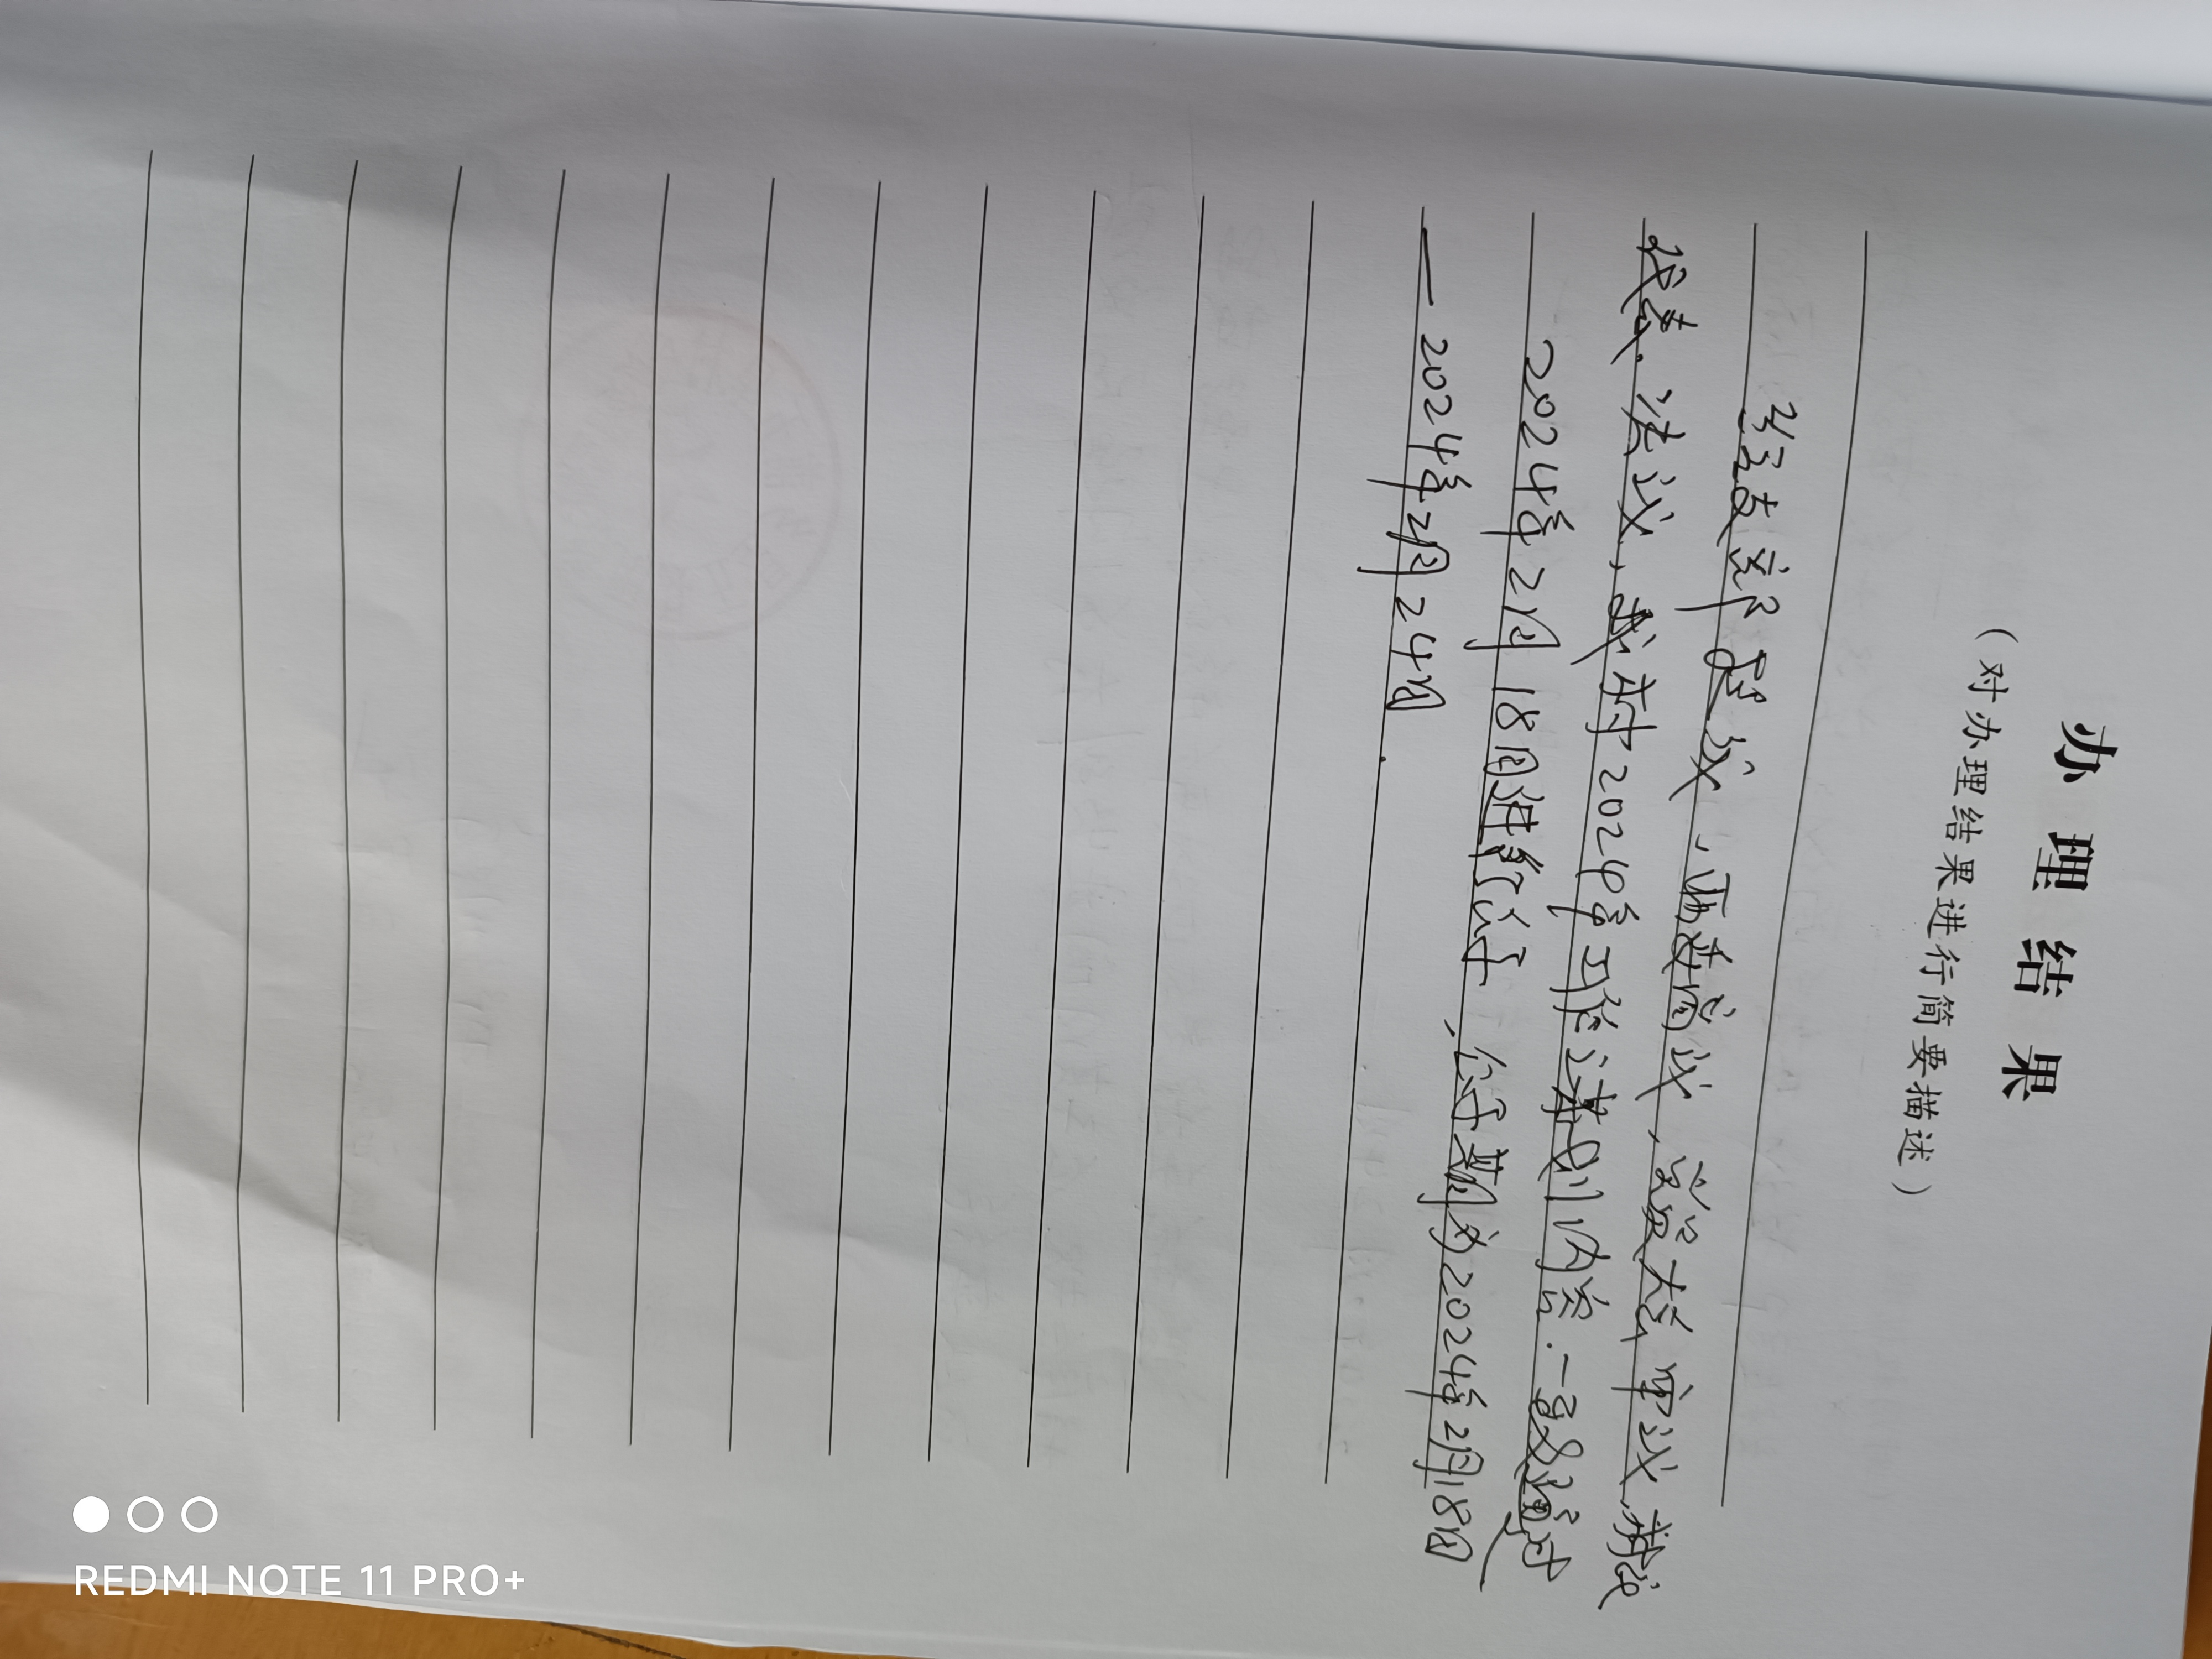 办理结果
（对办理结果进行简要描述）
经支部提议，两委商议，党员大会审议，村民
代表.决议，我村2024年工作谋划内容.一致通过
2024年2月18日进行公示，公示期为2024年2月18日
—2024年2月24日.
REDMI NOTE 11 PRO+